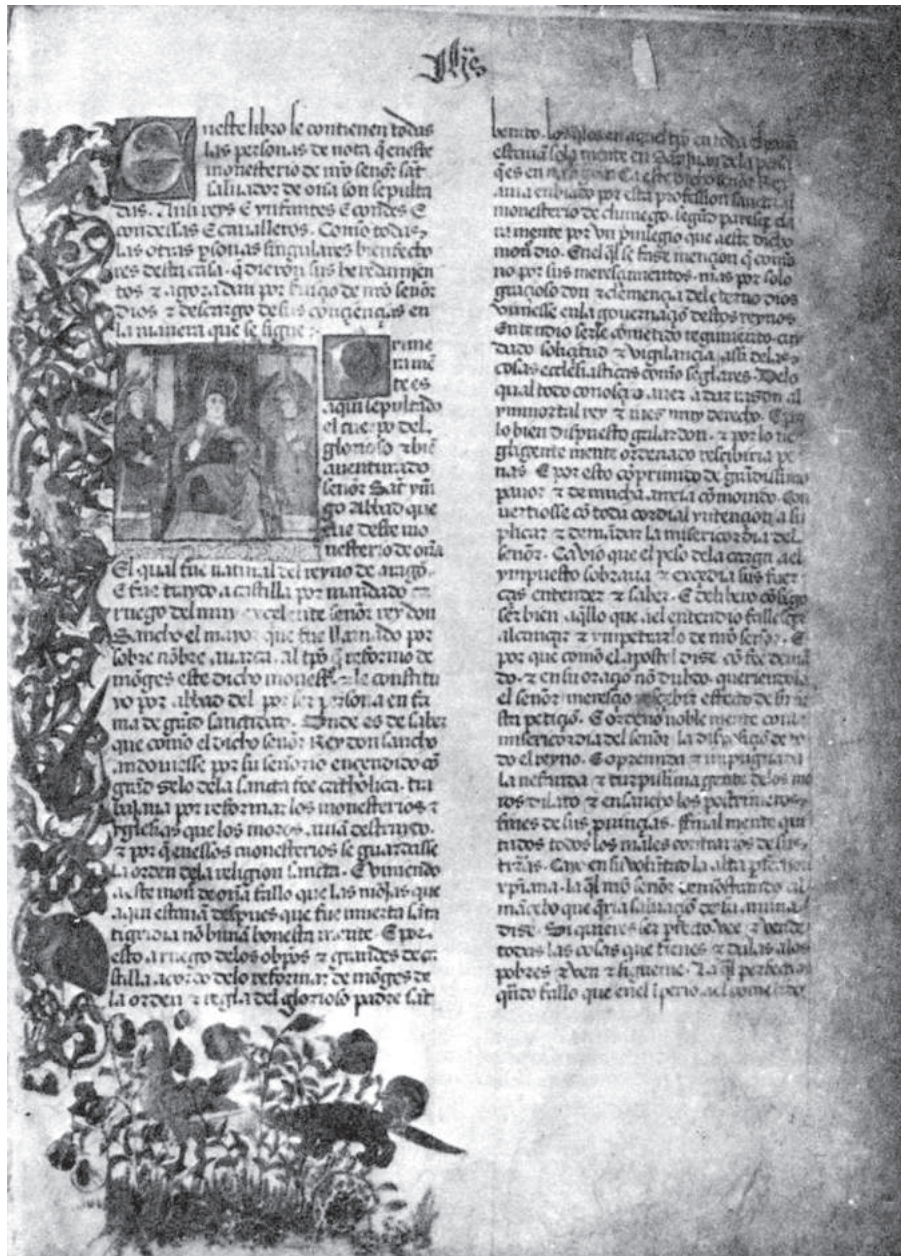 Jhs
Eneste libro se contienen todas
las personas de nota q̃ eneste
monesterio de nr̃o señor sãt
saluador de oña son sepulta
das. Ansi reys E ynfantes E condes E
condessas E caualleros. Como todas
las otras p̃sonas singulares bienfecto
res desta casa. q̃ dierõn sus heredamẽn
tos ⁊ agora dan por seruiçio de nr̃o señor
dios ⁊ descargo de sus conçiençias en
la manera que se sigue:
Prime
ramẽ
te es
aqui sepultado
el cuerpo del
glorioso ⁊ biẽ
auenturado
señor Sãt yñi
go abbad que
fue deste mo
nesterio de oña
El qual fue natural del reyno de aragõ.
E fue traydo a castilla por mandado
ruego del muy excelente señor rey don
Sancho el mayor que fue llamado por
sobre nõbre auarca. al tp̃o q̃ reformo de
mõges este dicho monest̃. le constitu
yo por abbad del por ser persona en fa
ma de grãd sanctidad. Donde es de saber
que como el dicho señor Rey don sancho
andouiesse por su señorio ençendido cõ
grãd zelo dela sancta fee catholica. tra
bajaua por reformar los monesterios ⁊
yglesias que los moros auiã destruydo.
⁊ por q̃ enessos monesterios se guardasse
la orden dela religion sancta. E viniendo
a este mon̄ de oña fallo que las mõjas que
aqui estauã despues que fue muerta sãta
tigridia nõ biuiã honesta mente. E por
esto a ruego delos obp̃os ⁊ grandes de ca
stilla acordo delo reformar de mõges de
la orden ⁊ regla del glorioso padre sãt
benito. los q̃les en aquel tp̃o en toda
estauã sola mente en San Juan dela peña
q̃ es en aragon. Ca este dicho señor Rey
auia enbiado por esta profession sancta al
monesterio de cluniego. segũd paresçe cla
ra mente por vn priuilegio que a este dicho
mon̄ dio. Enel q̃l se fase mençion q̃ como
no por sus meresçimientos. mas por solo
graçioso don ⁊ clemençia del eterno dios
viniesse enla gouernaçiõ destos reynos
Entendio serle cõmetido regimiento cuy
dado soliçitud ⁊ vigilançia assi delas
cosas ecclesiasticas como seglares. Delo
qual todo conosçio auer a dar rason al
ynmortal rey ⁊ jues muy derecho. E por
lo bien dispuesto gualardon. ⁊ por lo ne
gligente mente ordenado resçibiria pe
nas. E por esto cõprimido de grãdissimo
pauor ⁊ de mucha anxia cõmouido. Con
uertiosse cõ toda cordial yntençion a su
plicar ⁊ demãdar la misericordia del
señor. Ca vio que el peso dela carga a el
ympuesto sobraua ⁊ exçedia sus fuer
ças entender ⁊ saber. E delibero cõsigo
ser bien aq̃llo que a el entendio
alcançar ⁊ ynpetrarlo de nr̃o señor. E
por que como el apostol dise cõ fee demã
do. ⁊ en su oraçiõ nõ dubdo. queriendolo
el señor meresçio resçebir effecto de su ju
sta petiçiõ. E ordeno noble mente con la
misericordia del señor la disposiçiõ de to
do el reyno. E opremida ⁊ inpugnada
la nefanda ⁊ turpissima gente delos mo
ros dilato ⁊ ensancho los postrimeros
fines de sus prouinçias. Ffinal mente qui
tados todos los males contrarios de sus
tr̃ras. Cayo en su volũtad la alta p̃fecçiõ
xp̃iana. la q̃l nr̃o señor demostrando al
mãçebo que q̃ria saluaçiõ de su anima
dise. Si quieres ser p̃fecto vee ⁊ vende
todas las cosas que tienes ⁊ dalas alos
pobres ⁊ ven ⁊ sigueme. La q̃l perfecçiõ
q̃ndo fallo que enel